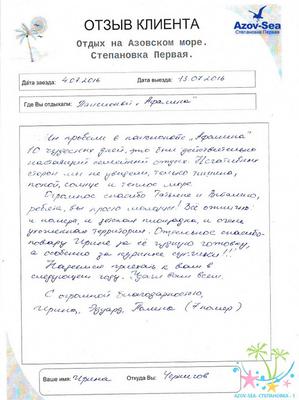 ОТЗЫВ КЛИЕНТА
Azov-Sea
Степановка Первая
Отдых на Азовском море.
Степановка Первая.
Дата заезда: 4.07.2016 Дата выезда: 13.07.2016
Где Вы отдыхали: Пансионат "Аралина"
Мы провели в пансионате "Аралина"
10 чудесных дней, это был действительно
настоящий семейный отдых. Негативных
сторон мы не увидели, только тишина,
покой, солнце и теплое море.
Огромное спасибо Татьяне и
ребята, вы просто молодцы! Всё отлично:
и номера, и детская площадка, и очень
ухоженная территория. Отдельное спасибо
повару Ирине за её чудную готовку,
а особенно за куриные !!!
Надеемся приехать к вам в
следующем году. Удачи вам всем.
С огромной благодарностью,
Ирина, Эдуард, Полина (7 номер)
Ваше имя: Ирина Откуда Вы: Чернигов
AZOV-SEA- СТЕПАНОВКА - 1